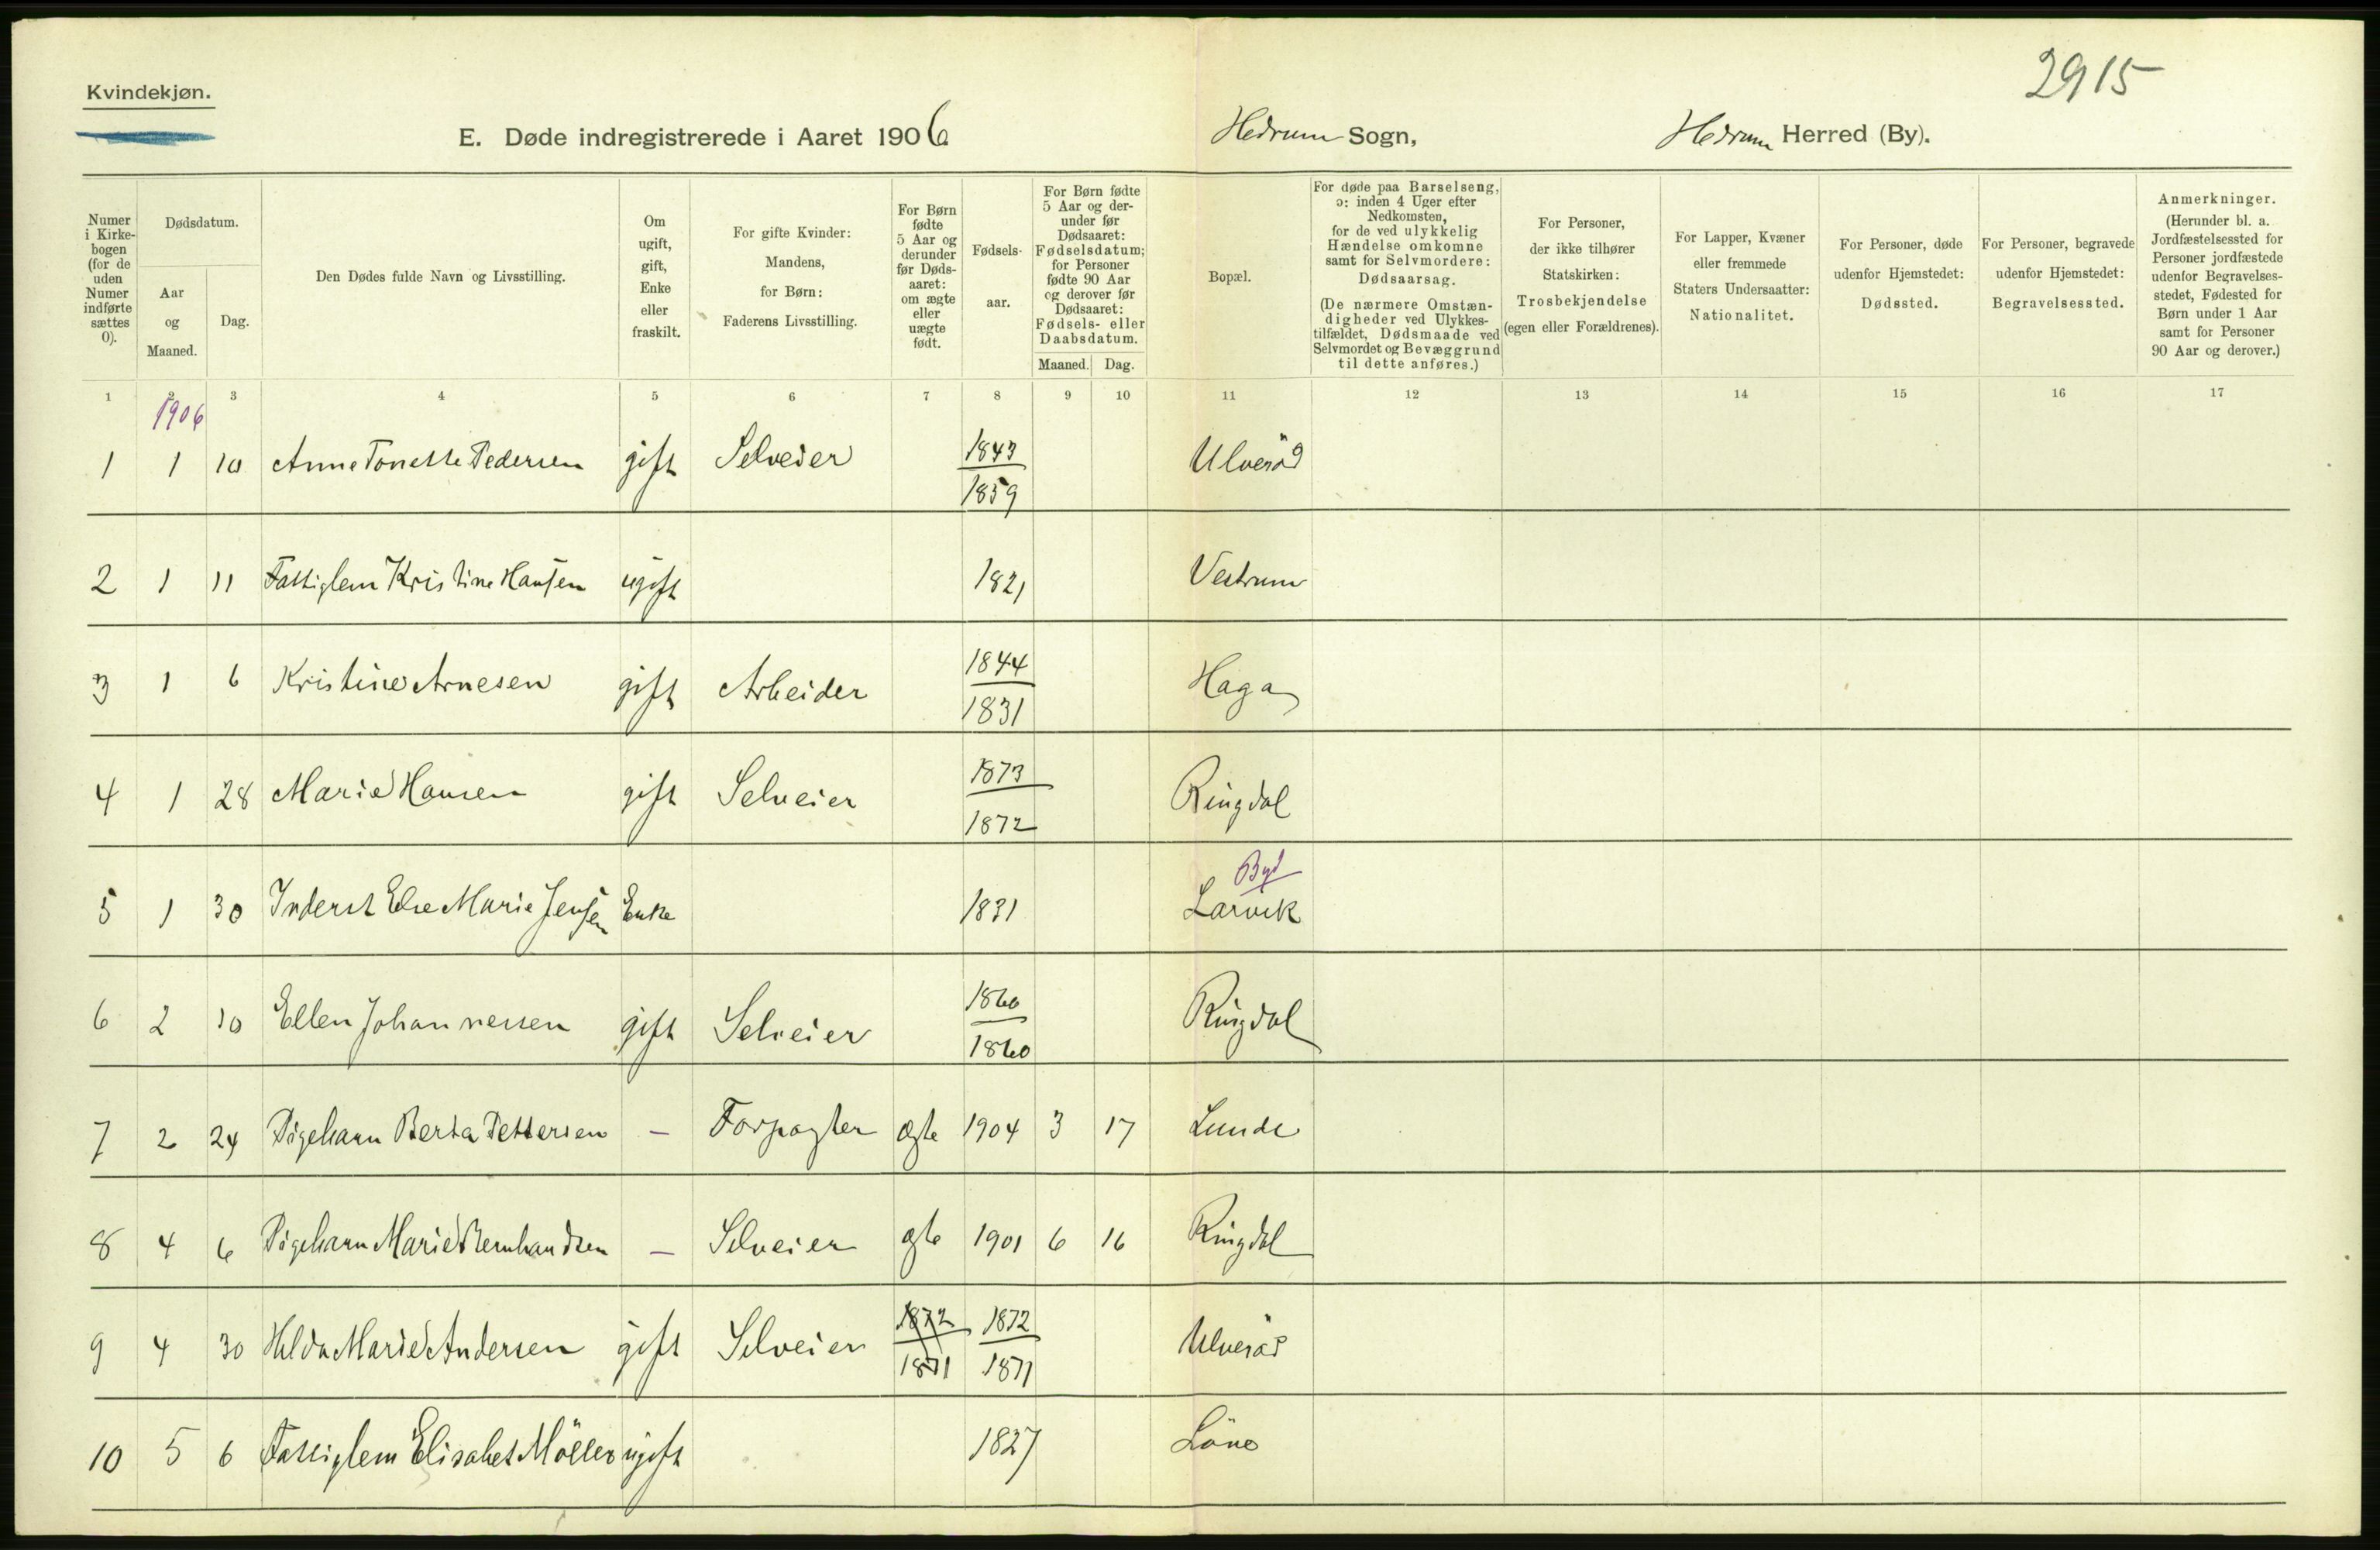 2915
Kvindekjøn.
E. Døde indregistrerede i Aaret 1906 Hedrum Sogn, Hedrum Herred (By).
Numer i Kirkebogen (for de uden Numer indførte sættes 0).
Dødsdatum.
Aar og Maaned.
Dag.
Den Dødes fulde Navn og Livsstilling.
Om ugift, gift, Enke eller fraskilt.
For gifte Kvinder: Mandens, for Børn: Faderens Livsstilling.
For Børn fødte 5 Aar og derunder før Dødsaaret: om ægte eller uægte født.
Fødselsaar.
For Børn fødte 5 Aar og derunder før Dødsaaret: Fødselsdatum; for Personer fødte 90 Aar og derover før Dødsaaret: Fødsels- eller Daabsdatum.
Maaned. Dag.
Bopæl.
For døde paa Barselseng, ɔ: inden 4 Uger efter Nedkomsten, for de ved ulykkelig Hændelse omkomne samt for Selvmordere: Dødsaarsag. (De nærmere Omstændigheder ved Ulykkestilfældet, Dødsmaade ved Selvmordet og Bevæggrund til dette anføres.)
For Personer, der ikke tilhører Statskirken: Trosbekjendelse (egen eller Forældrenes).
For Lapper, Kvæner eller fremmede Staters Undersaatter: Nationalitet.
For Personer, døde udenfor Hjemstedet: Dødssted.
For Personer, begravede udenfor Hjemstedet: Begravelsessted.
Anmerkninger. (Herunder bl. a. Jordfæstelsessted for Personer jordfæstede udenfor Begravelsesstedet, Fødested for Børn under 1 Aar samt for Personer 90 Aar og derover.)
1 2 3 4 5 6 7 8 9 10 11 12 13 14 15 16 17
1906
1 1 10 Anne Tonette Pedersen gift Selveier 1843 Ulveröd
1859
2 1 11 Fattiglem Kristine Hansen ugift 1821 Vestrum
3 1 6 Kristine Arnesen gift Arbeider 1844 Haga
1831
4 1 28 Marie Hansen gift Selveier 1873 Ringdal
1872
Byd
5 1 30 Inderst Else Marie Jensen Enke 1831 Larvik
6 2 10 Ellen Johannessen gift Selveier 1860 Ringdal
1860
7 2 24 Pigebarn Berta Pettersen – Forpagter ægte 1904 3 17 Lunde
8 4 6 Pigebarn Marie Bernhardsen – Selveier ægte 1901 6 16 Ringdal
9 4 30 Hilda Marie Andersen gift Selveier 1872 1872 Ulveröd
1871 1871
10 5 6 Fattiglem Elisabet Möller ugift 1827